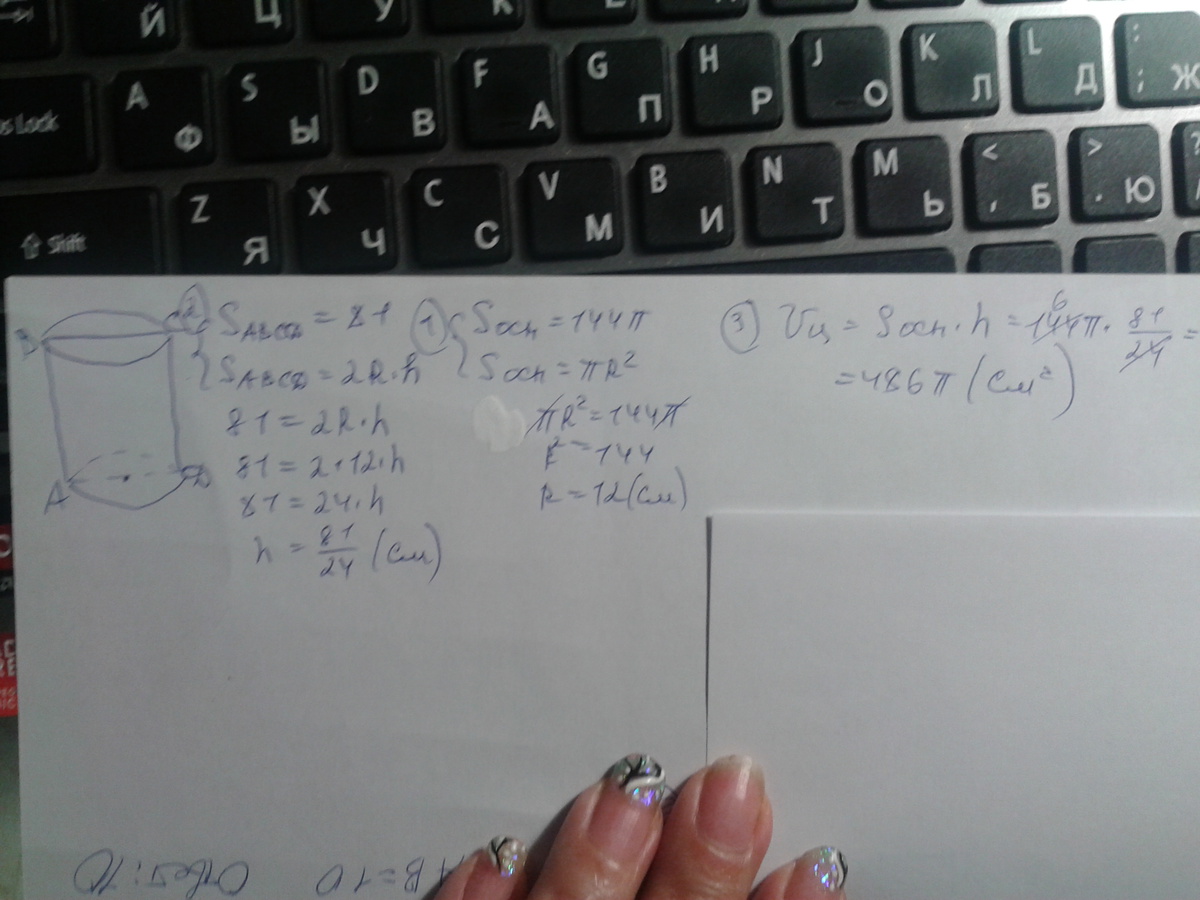 Й Ц У К
us Lock A Ф S Ы D В F А G П H Р J О K Л L Д : ; Ж
Shift Z Я X Ч C С V М B И N Т M Ь < , Б > . Ю
B C
A D
② S_ABCD = 81
S_ABCD = 2R·h
81 = 2R·h
81 = 2·12·h
81 = 24·h
h = 81/24 (см)
① Sосн = 144π
Sосн = πR²
πR² = 144π
R² = 144
R = 12 (см)
③ Vц = Sосн·h = 144π · 81/24 =
6
= 486π (см²)
B = 10
Ответ: 10